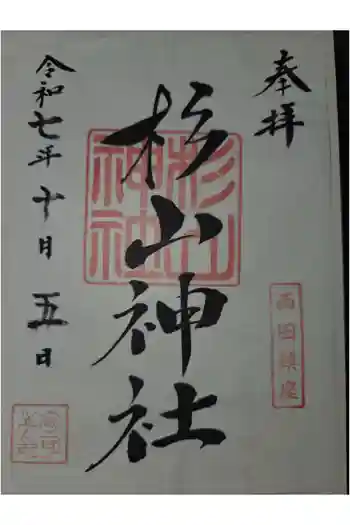 奉拝
杉山神社
杉山
神社
西田鎮座
令和七年十月五日